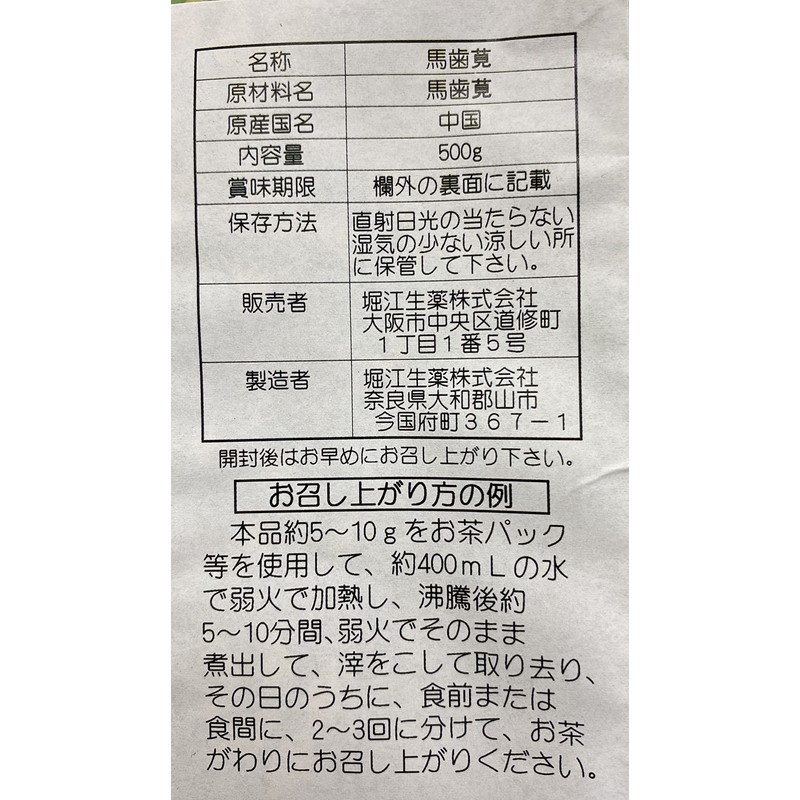 名称 馬歯莧
原材料名 馬歯莧
原産国名 中国
内容量 500g
賞味期限 欄外の裏面に記載
保存方法 直射日光の当たらない
湿気の少ない涼しい所
に保管して下さい。
販売者 堀江生薬株式会社
大阪市中央区道修町
1丁目1番5号
製造者 堀江生薬株式会社
奈良県大和郡山市
今国府町367-1
開封後はお早めにお召し上がり下さい。
お召し上がり方の例
本品約5〜10gをお茶パック
等を使用して、約400mLの水
で弱火で加熱し、沸騰後約
5〜10分間、弱火でそのまま
煮出して、滓をこして取り去り、
その日のうちに、食前または
食間に、2〜3回に分けて、お茶
がわりにお召し上がりください。